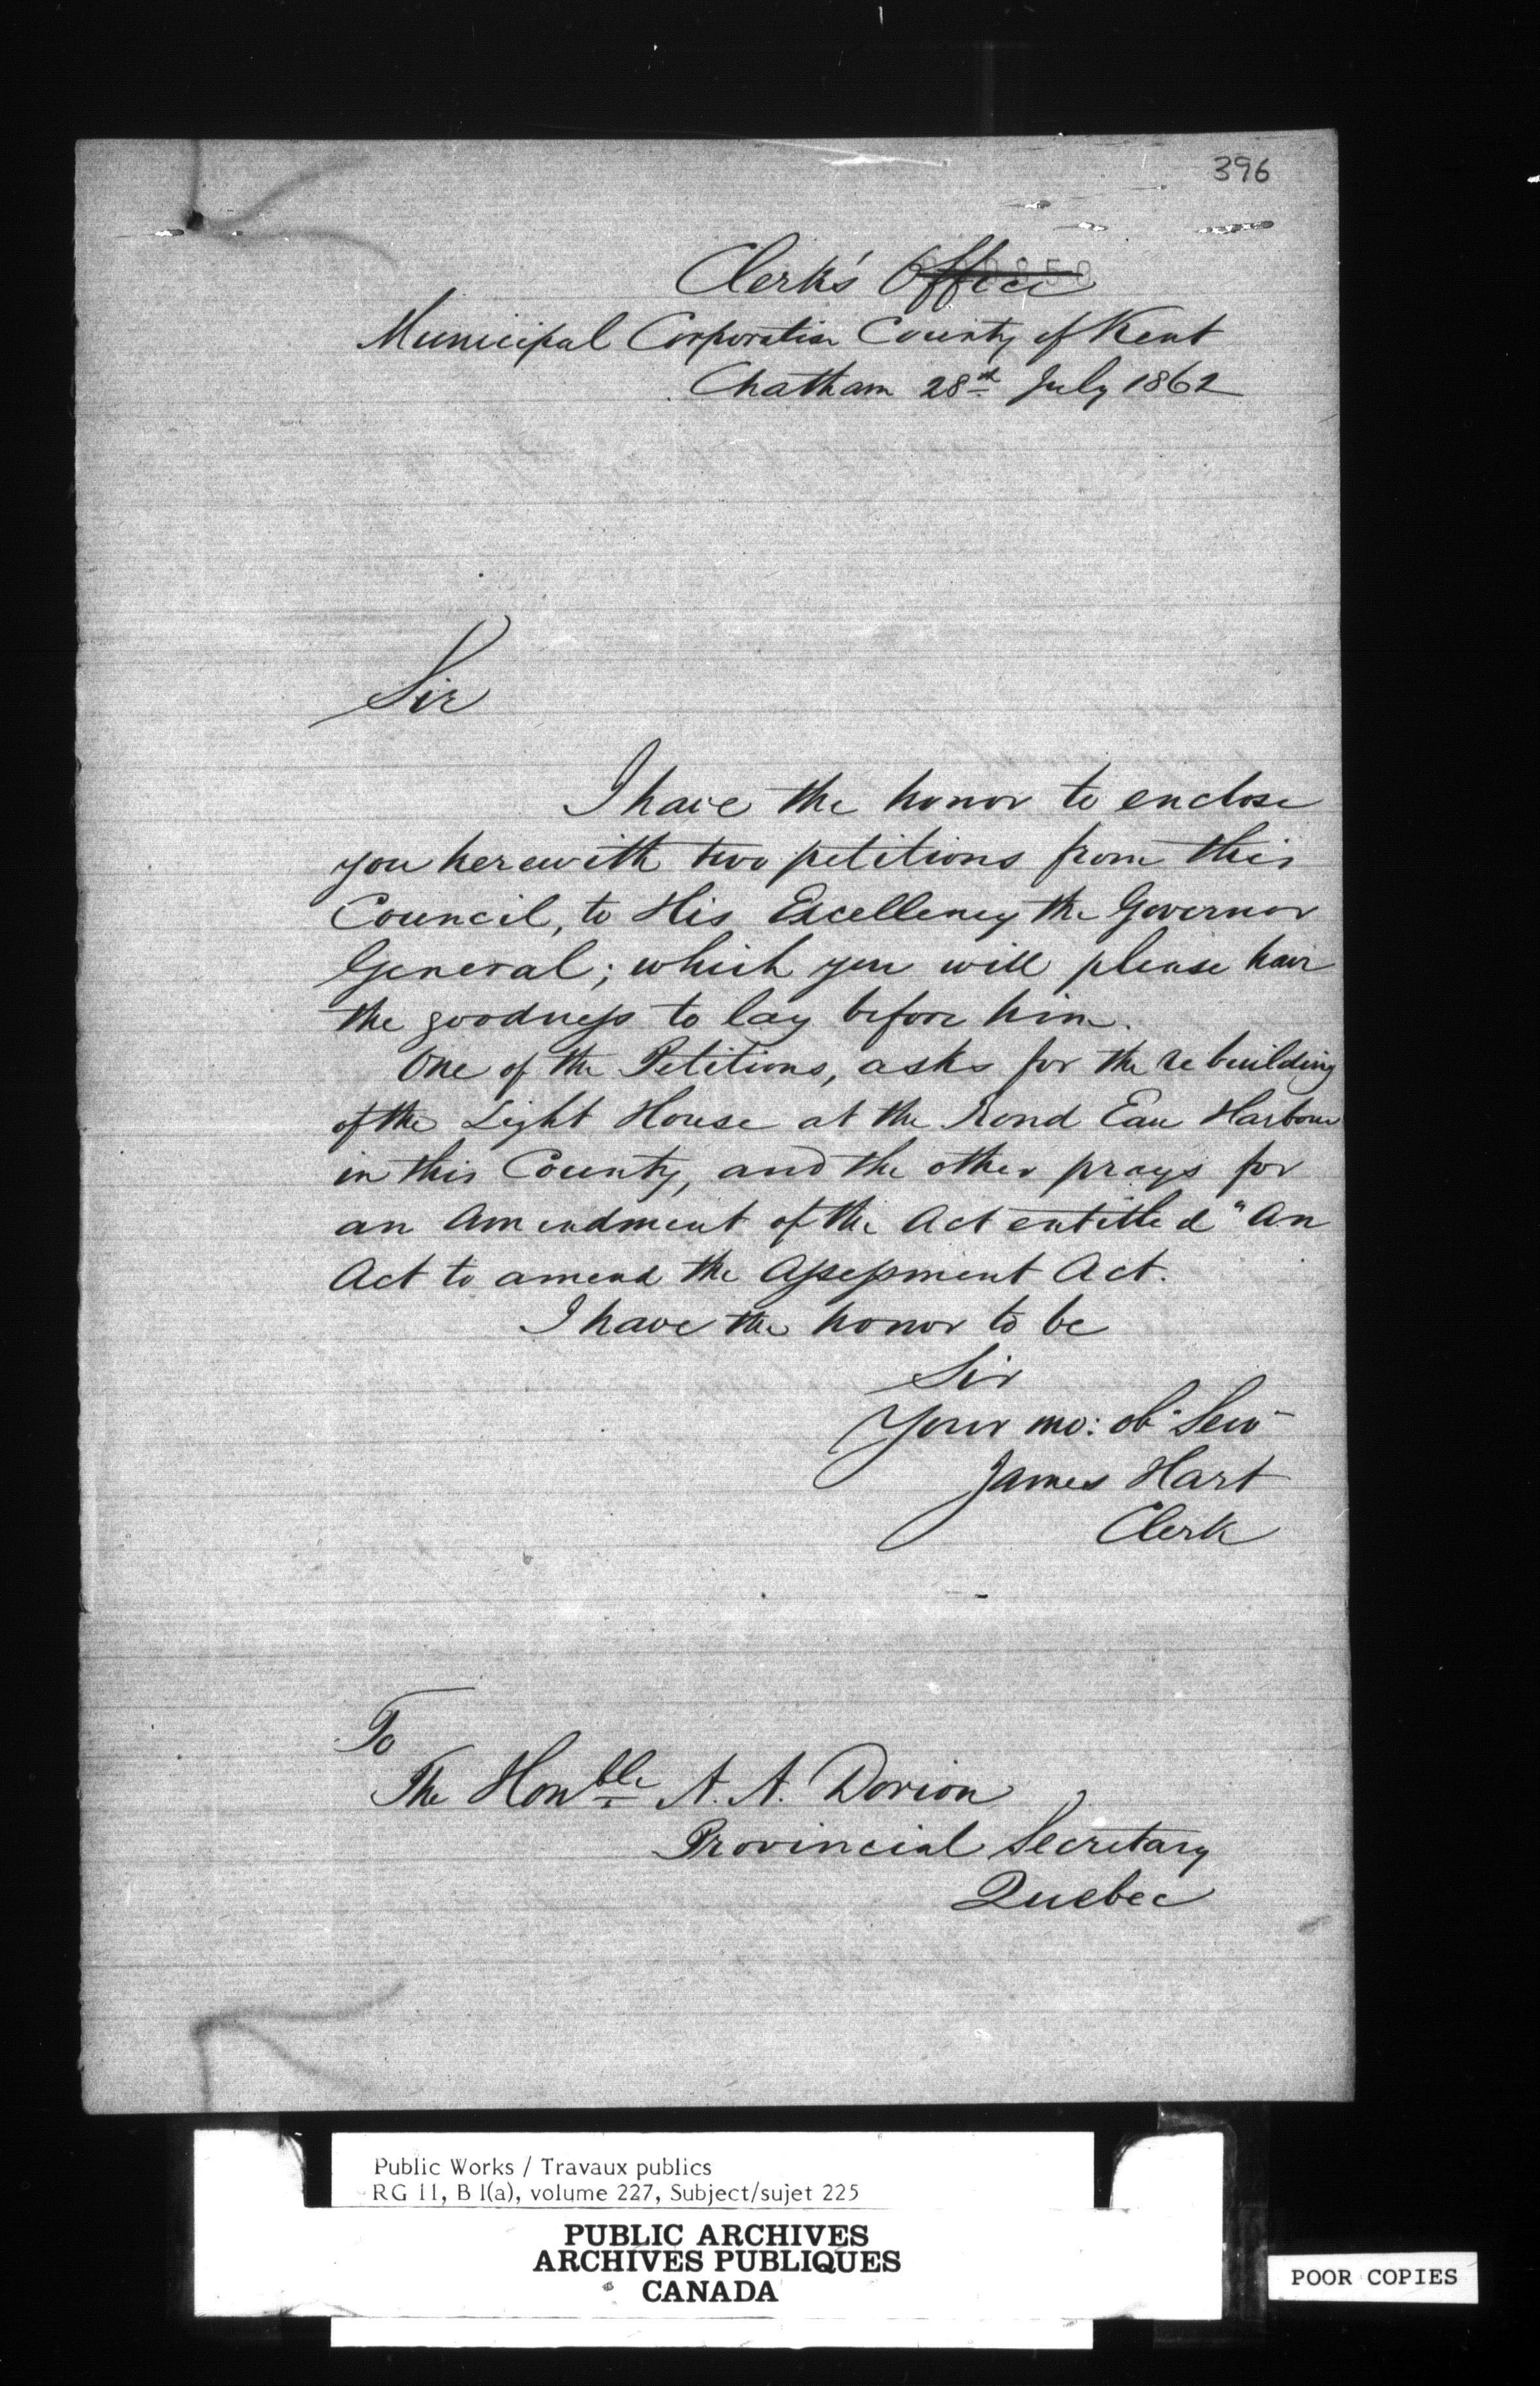 396
Clerk's Office
Municipal Corporation County of Kent
Chatham 28th July 1862
Sir
I have the honor to enclose
you herewith two petitions from this
Council, to His Excellency the Governor
General; which you will please have
the goodness to lay before him.
One of the Petitions, asks for the rebuilding
of the Light House at the Rond Eau Harbour
in this County, and the other prays for
an Amendment of the Act entitled "An
Act to amend the Assessment Act.
I have the honor to be
Sir
Your mo: ob Serv
James Hart
Clerk
To
The Honble A. A. Dorion
Provincial Secretary
Quebec
Public Works / Travaux publics
RG 11, B 1(a), volume 227, Subject/sujet 225
PUBLIC ARCHIVES
ARCHIVES PUBLIQUES
CANADA
POOR COPIES